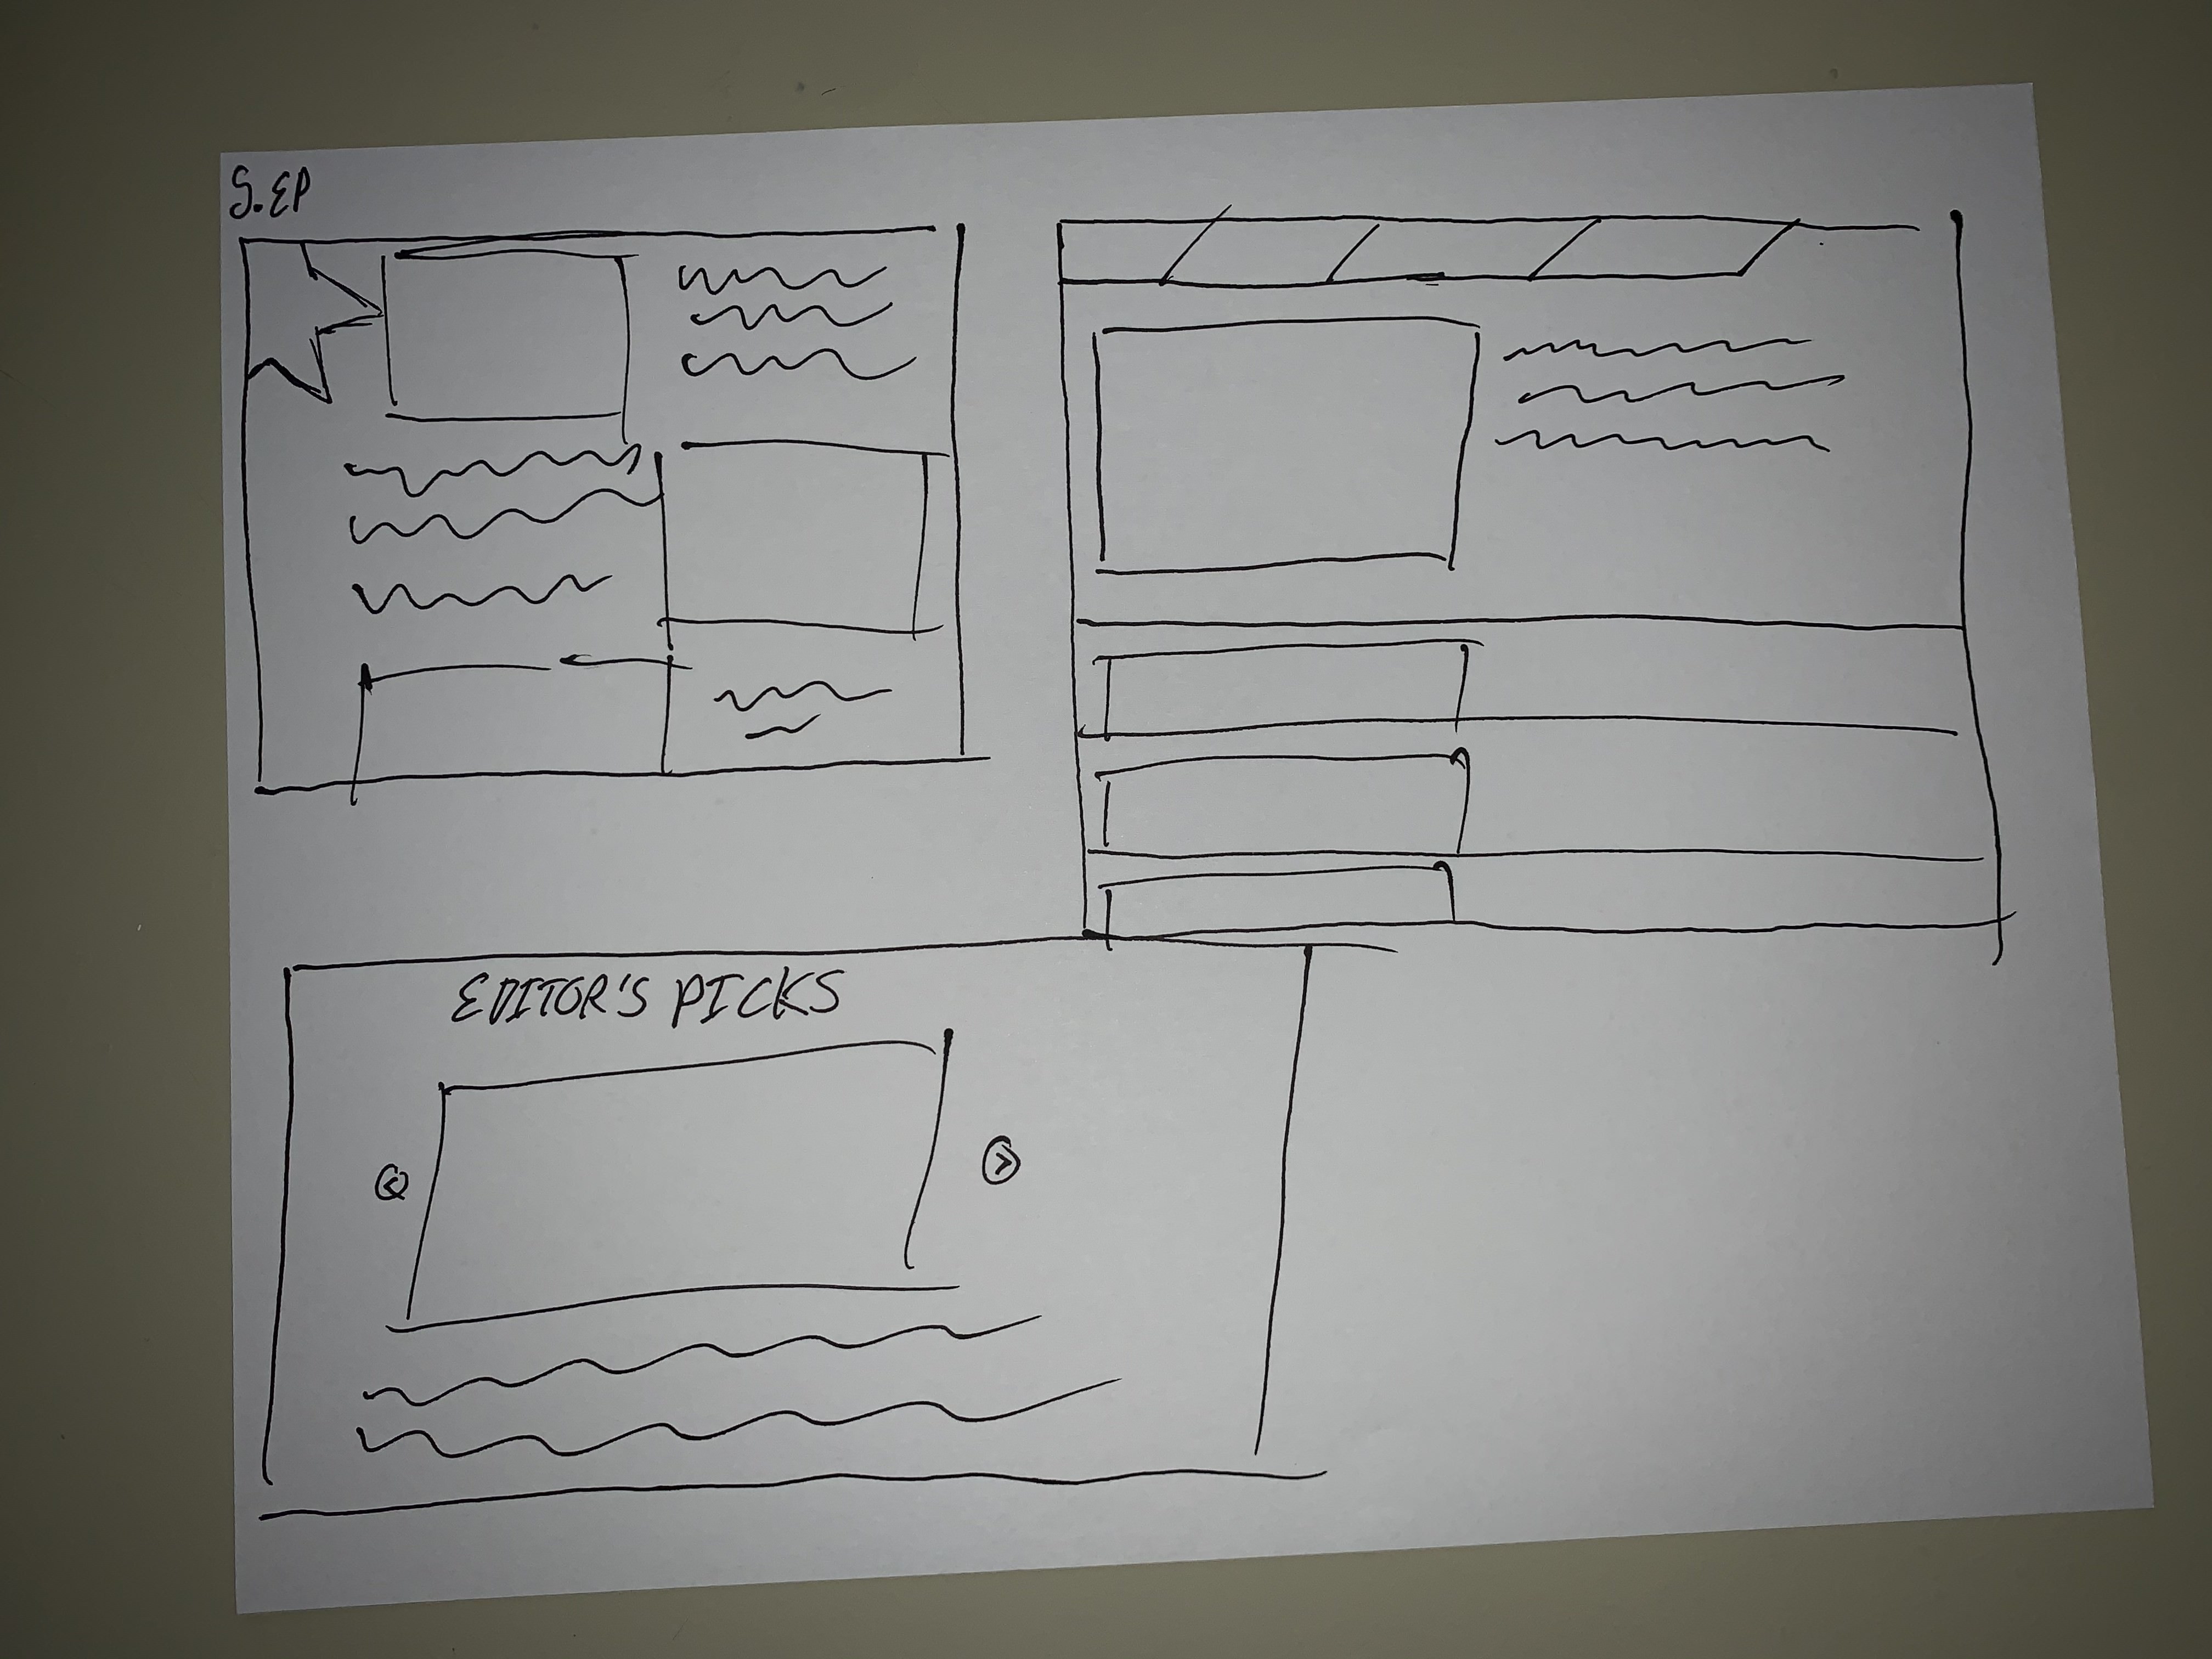 S.EP
EDITOR'S PICKS